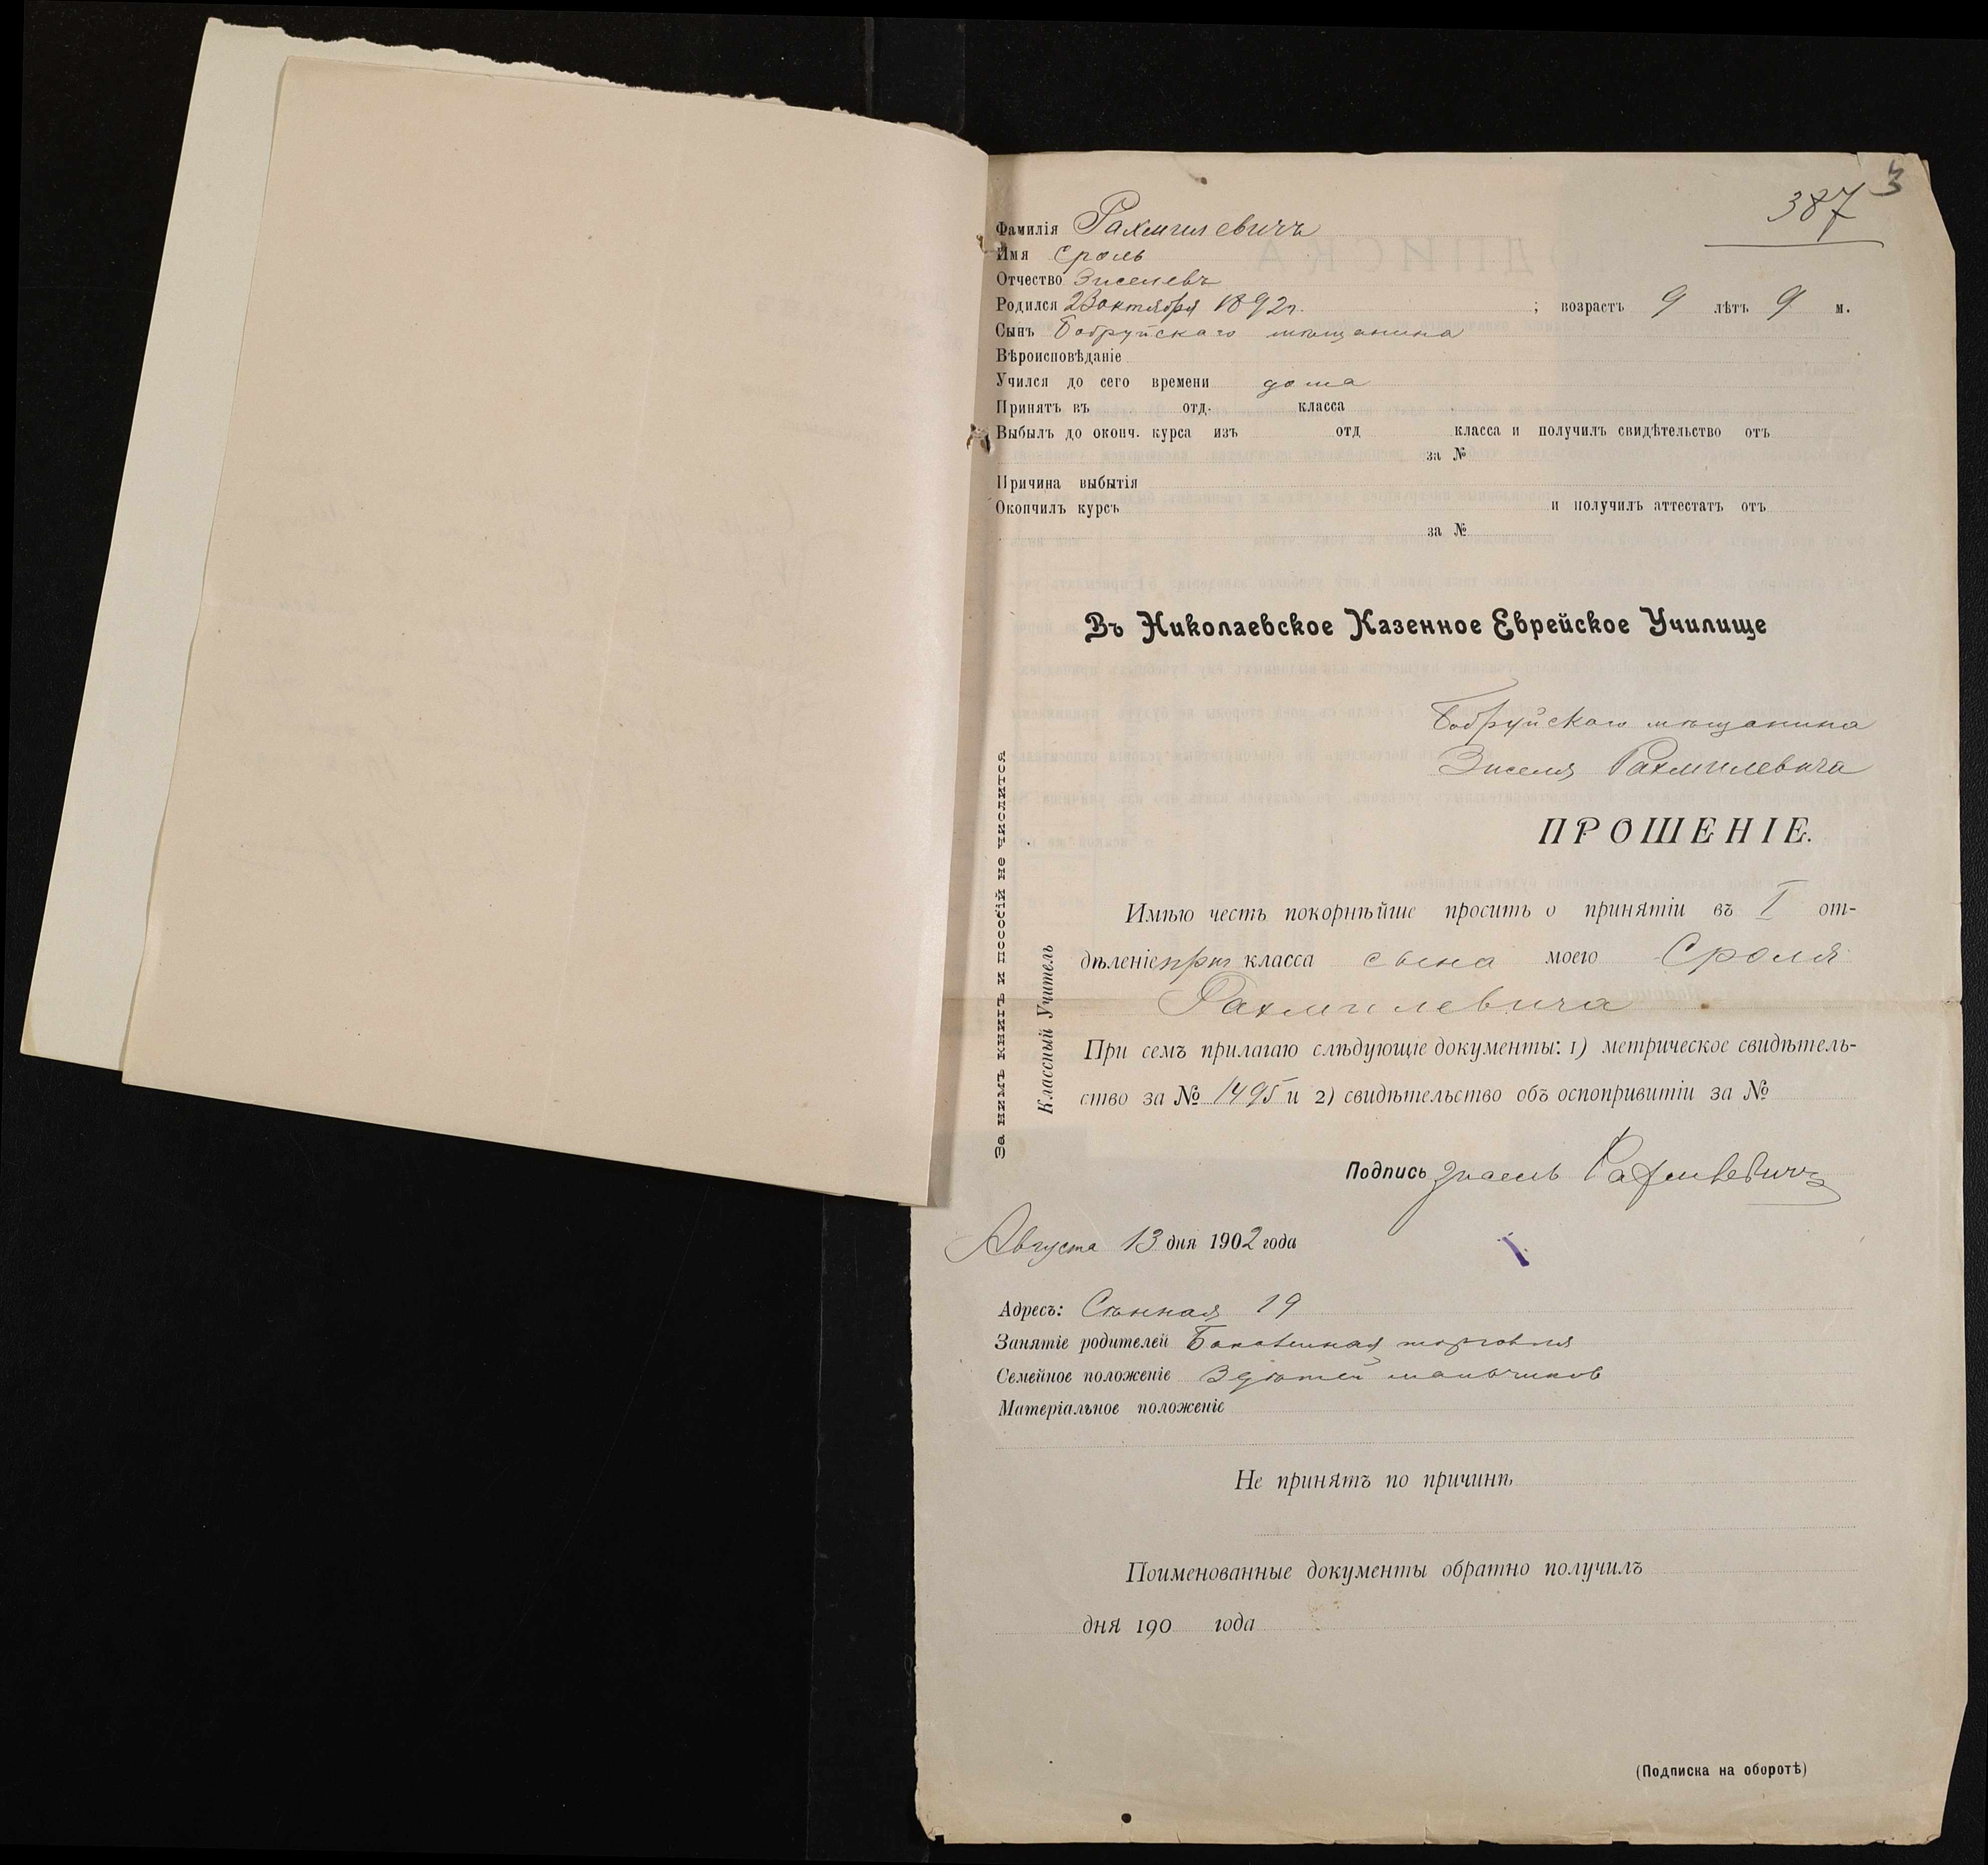 3
387
Фамилія Рахмилевичъ
Имя Сроль
Отчество Зиселевъ
Родился 23 октября 1892 г. ; возрастъ 9 лѣтъ 9 м.
Сынъ Бобруйскаго мѣщанина
Вѣроисповѣданіе
Учился до сего времени дома
Принятъ въ отд. класса
Выбылъ до оконч. курса изъ отд класса и получилъ свидѣтельство отъ
за №
Причина выбытія
Окончилъ курсъ и получилъ аттестатъ отъ
за №
Въ Николаевское Казенное Еврейское Училище
Бобруйскаго мѣщанина
Зиселя Рахмилевича
ПРОШЕНІЕ.
Имѣю честь покорнѣйше просить о принятіи въ I от-
дѣленіе приг класса сына моего Сроля
Рахмилевича
При семъ прилагаю слѣдующіе документы: 1) метрическое свидѣтель-
ство за № 1495 и 2) свидѣтельство объ оспопривитіи за №
Подпись Зисель Рахмилевичъ
Августа 13 дня 1902 года
Адресъ: Сѣнная 19
Занятіе родителей Бакалейная торговля
Семейное положеніе 3 дѣтей мальчиков
Матеріальное положеніе
Не принятъ по причинѣ
Поименованные документы обратно получилъ
дня 190 года
(Подписка на оборотѣ)
За нимъ книгъ и пособій не числится
Классный Учитель